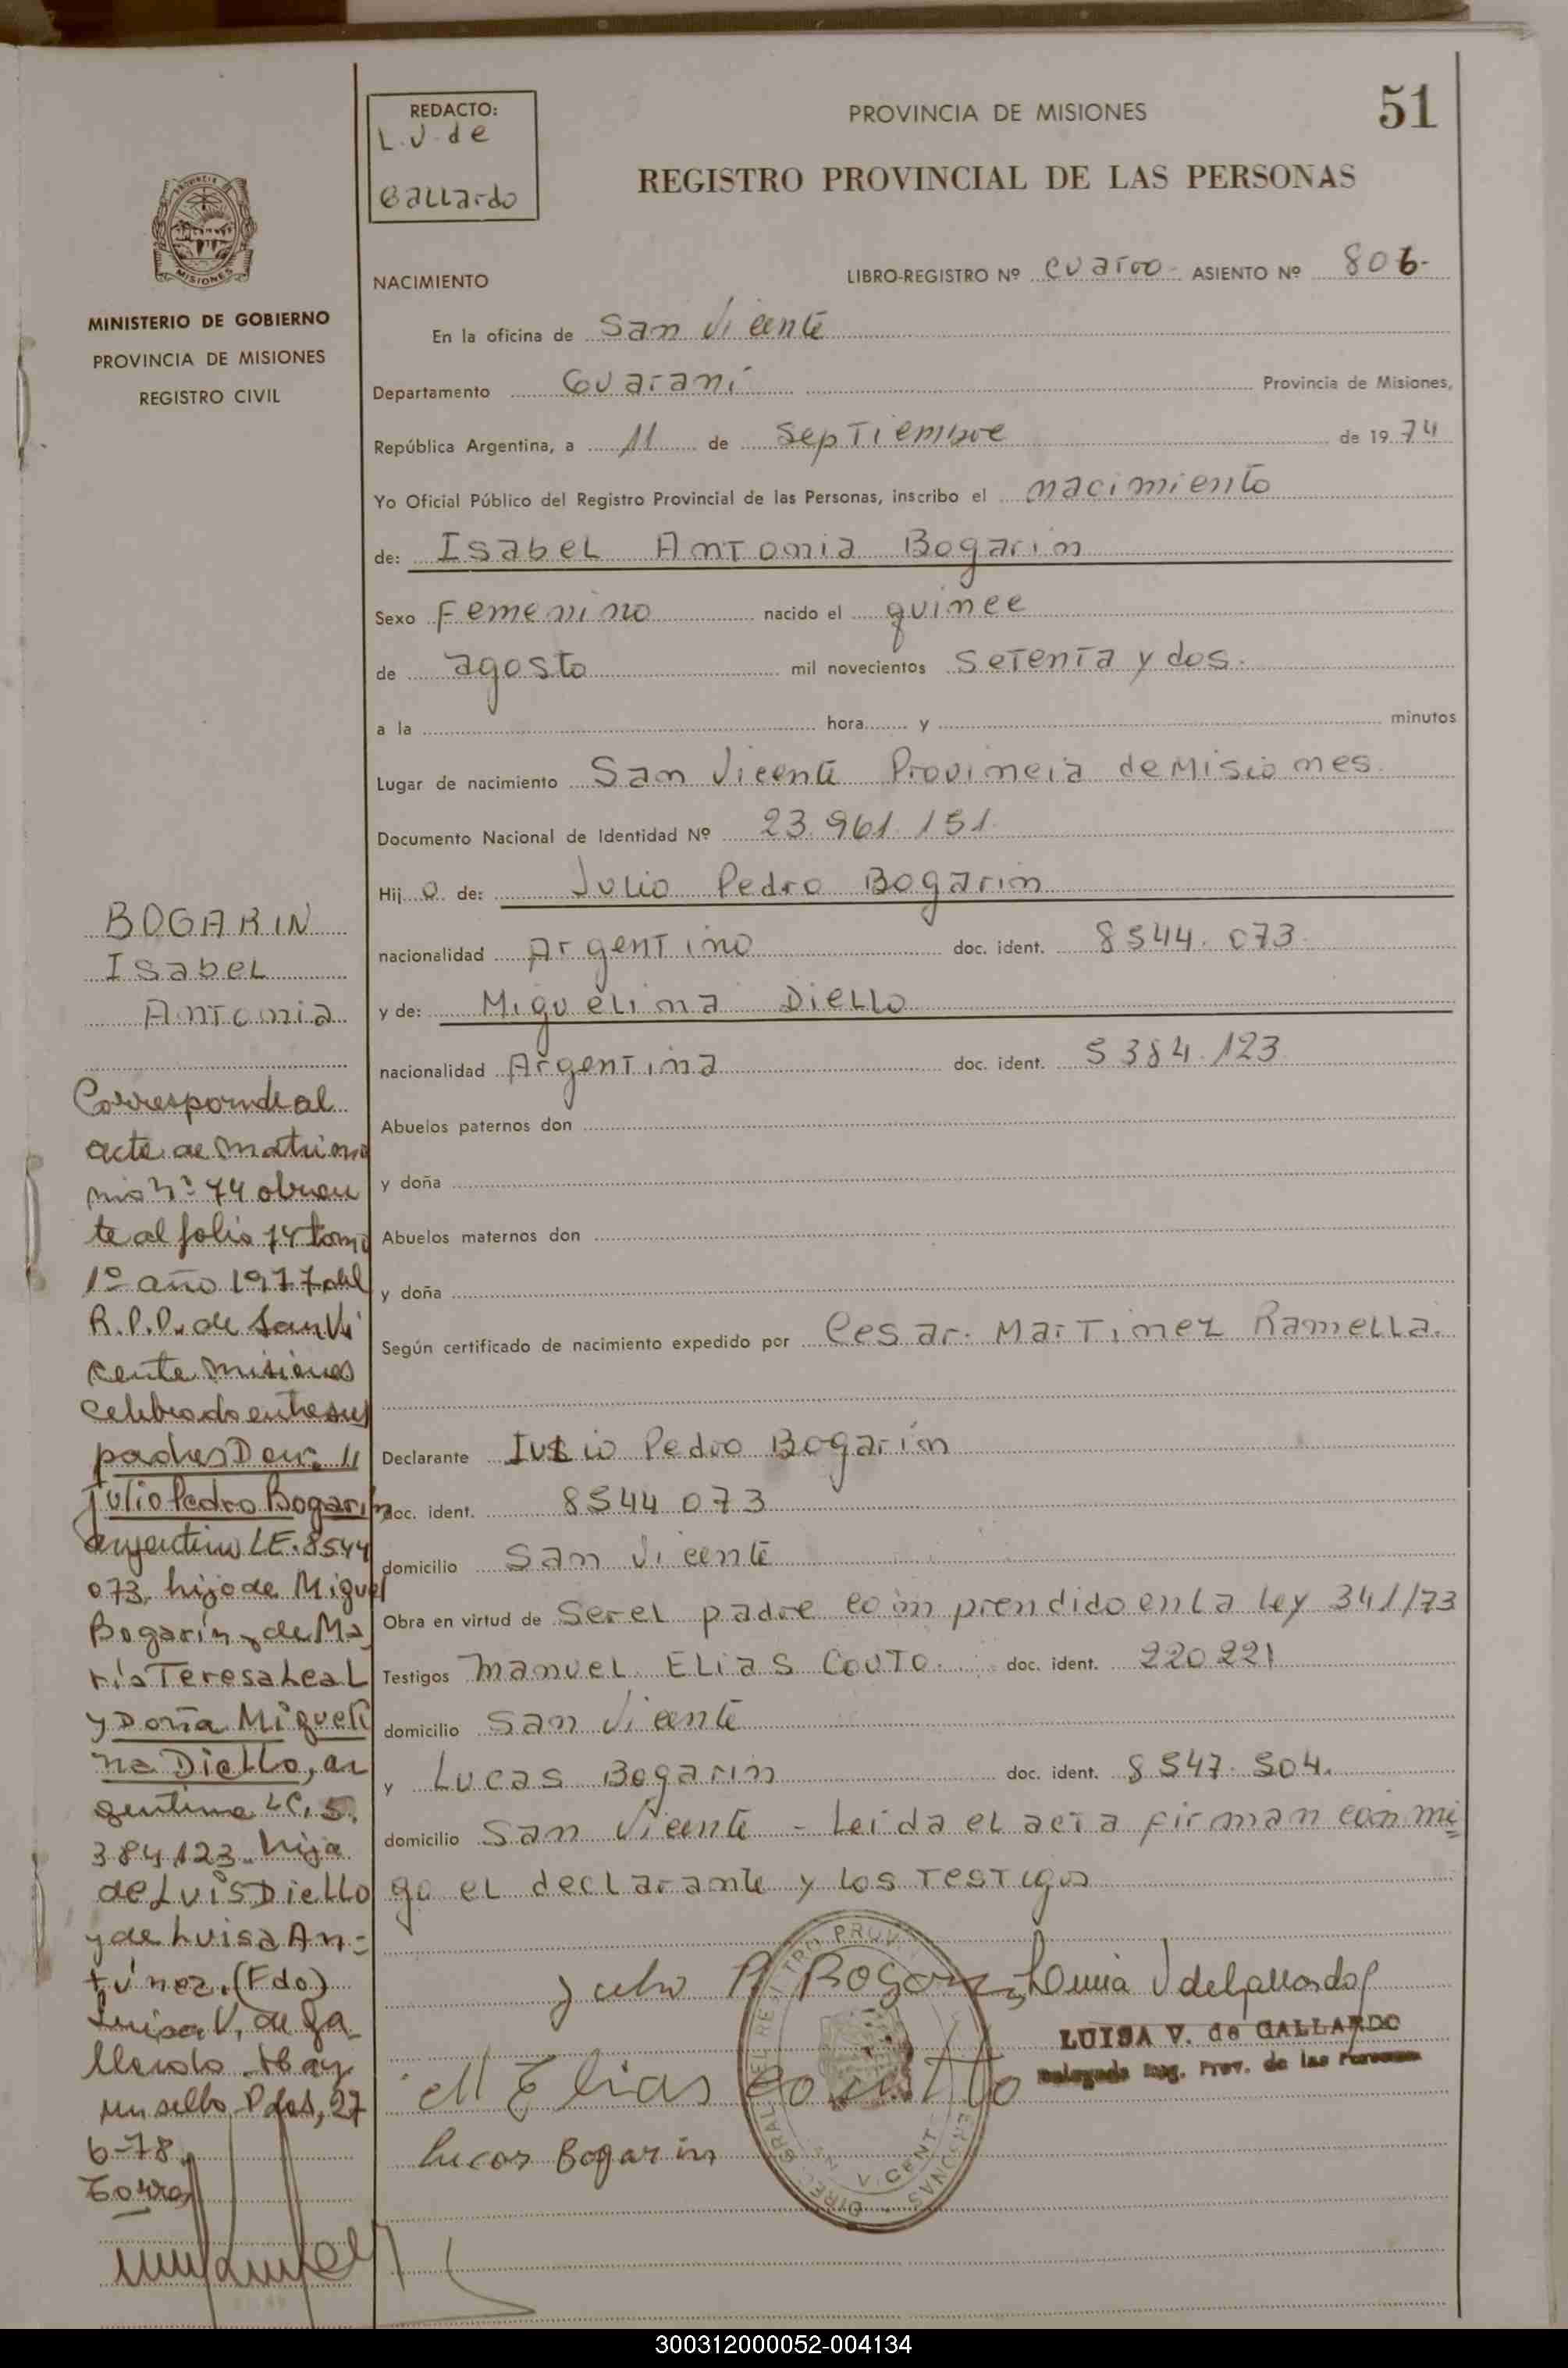 REDACTO:
L.V. de
Gallardo
PROVINCIA DE MISIONES
51
REGISTRO PROVINCIAL DE LAS PERSONAS
PROVINCIA
MISIONES
MINISTERIO DE GOBIERNO
PROVINCIA DE MISIONES
REGISTRO CIVIL
NACIMIENTO
LIBRO-REGISTRO Nº cuarto - ASIENTO Nº 806-
En la oficina de San Vicente
Departamento Guaraní Provincia de Misiones,
República Argentina, a 11 de Septiembre de 1974
Yo Oficial Público del Registro Provincial de las Personas, inscribo el nacimiento
de: Isabel Antonia Bogarin
Sexo Femenino nacido el quince
de agosto mil novecientos setenta y dos.
a la hora y minutos
Lugar de nacimiento San Vicente Provincia de Misiones
Documento Nacional de Identidad Nº 23.961.151.
Hijo de: Julio Pedro Bogarin
nacionalidad Argentino doc. ident. 8544.073.
y de: Miguelina Diello
nacionalidad Argentina doc. ident. 5384.123
Abuelos paternos don
y doña
Abuelos maternos don
y doña
Según certificado de nacimiento expedido por Cesar. Martinez Ramella.
Declarante Julio Pedro Bogarin
doc. ident. 8544 073
domicilio San Vicente
Obra en virtud de Ser el padre comprendido en la ley 341/73
Testigos Manuel Elias Couto. doc. ident. 220 221
domicilio San Vicente
y Lucas Bogarin doc. ident. 8547.504.
domicilio San Vicente - Leida el acta firman conmi=
go el declarante y los testigos
Julio P Bogarin
Luisa V de Gallardo
LUISA V. de GALLARDO
Delegada Reg. Prov. de las Personas
M Elias Coutto
Lucas Bogarin
BOGARIN
Isabel
Antonia
Corresponde al
acta de matrimo
nio nº 74 obran
te al folio 74 tomo
1º año 1977 del
R.P.P. de San Vi
cente Misiones
celebrado entre sus
padres Don: "
Julio Pedro Bogarín
argentino L.E. 8544
073. hijo de Miguel
Bogarín y de Ma
ría Teresa Leal
y Doña Migueli
na Diello, ar
gentina LC. 5.
384.123. hija
de Luis Diello
y de Luisa An=
túnez. (Fdo)
Luisa V. de Ga_
llardo. Hay
un sello. Pdas, 27
6-78.
300312000052-004134